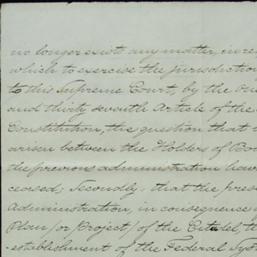 no longer exists any matter, in re
which to exercise the jurisdiction
to this Supreme Court, by the one
and thirty seventh Article of the
Constitution, the question that
arisen between the Holders of Bon
the previous administration hav
ceased; Secondly, that the pres
Administration, in consequence
Plan / or Project / of the Citadel, th
-establishment of the Federal Sys